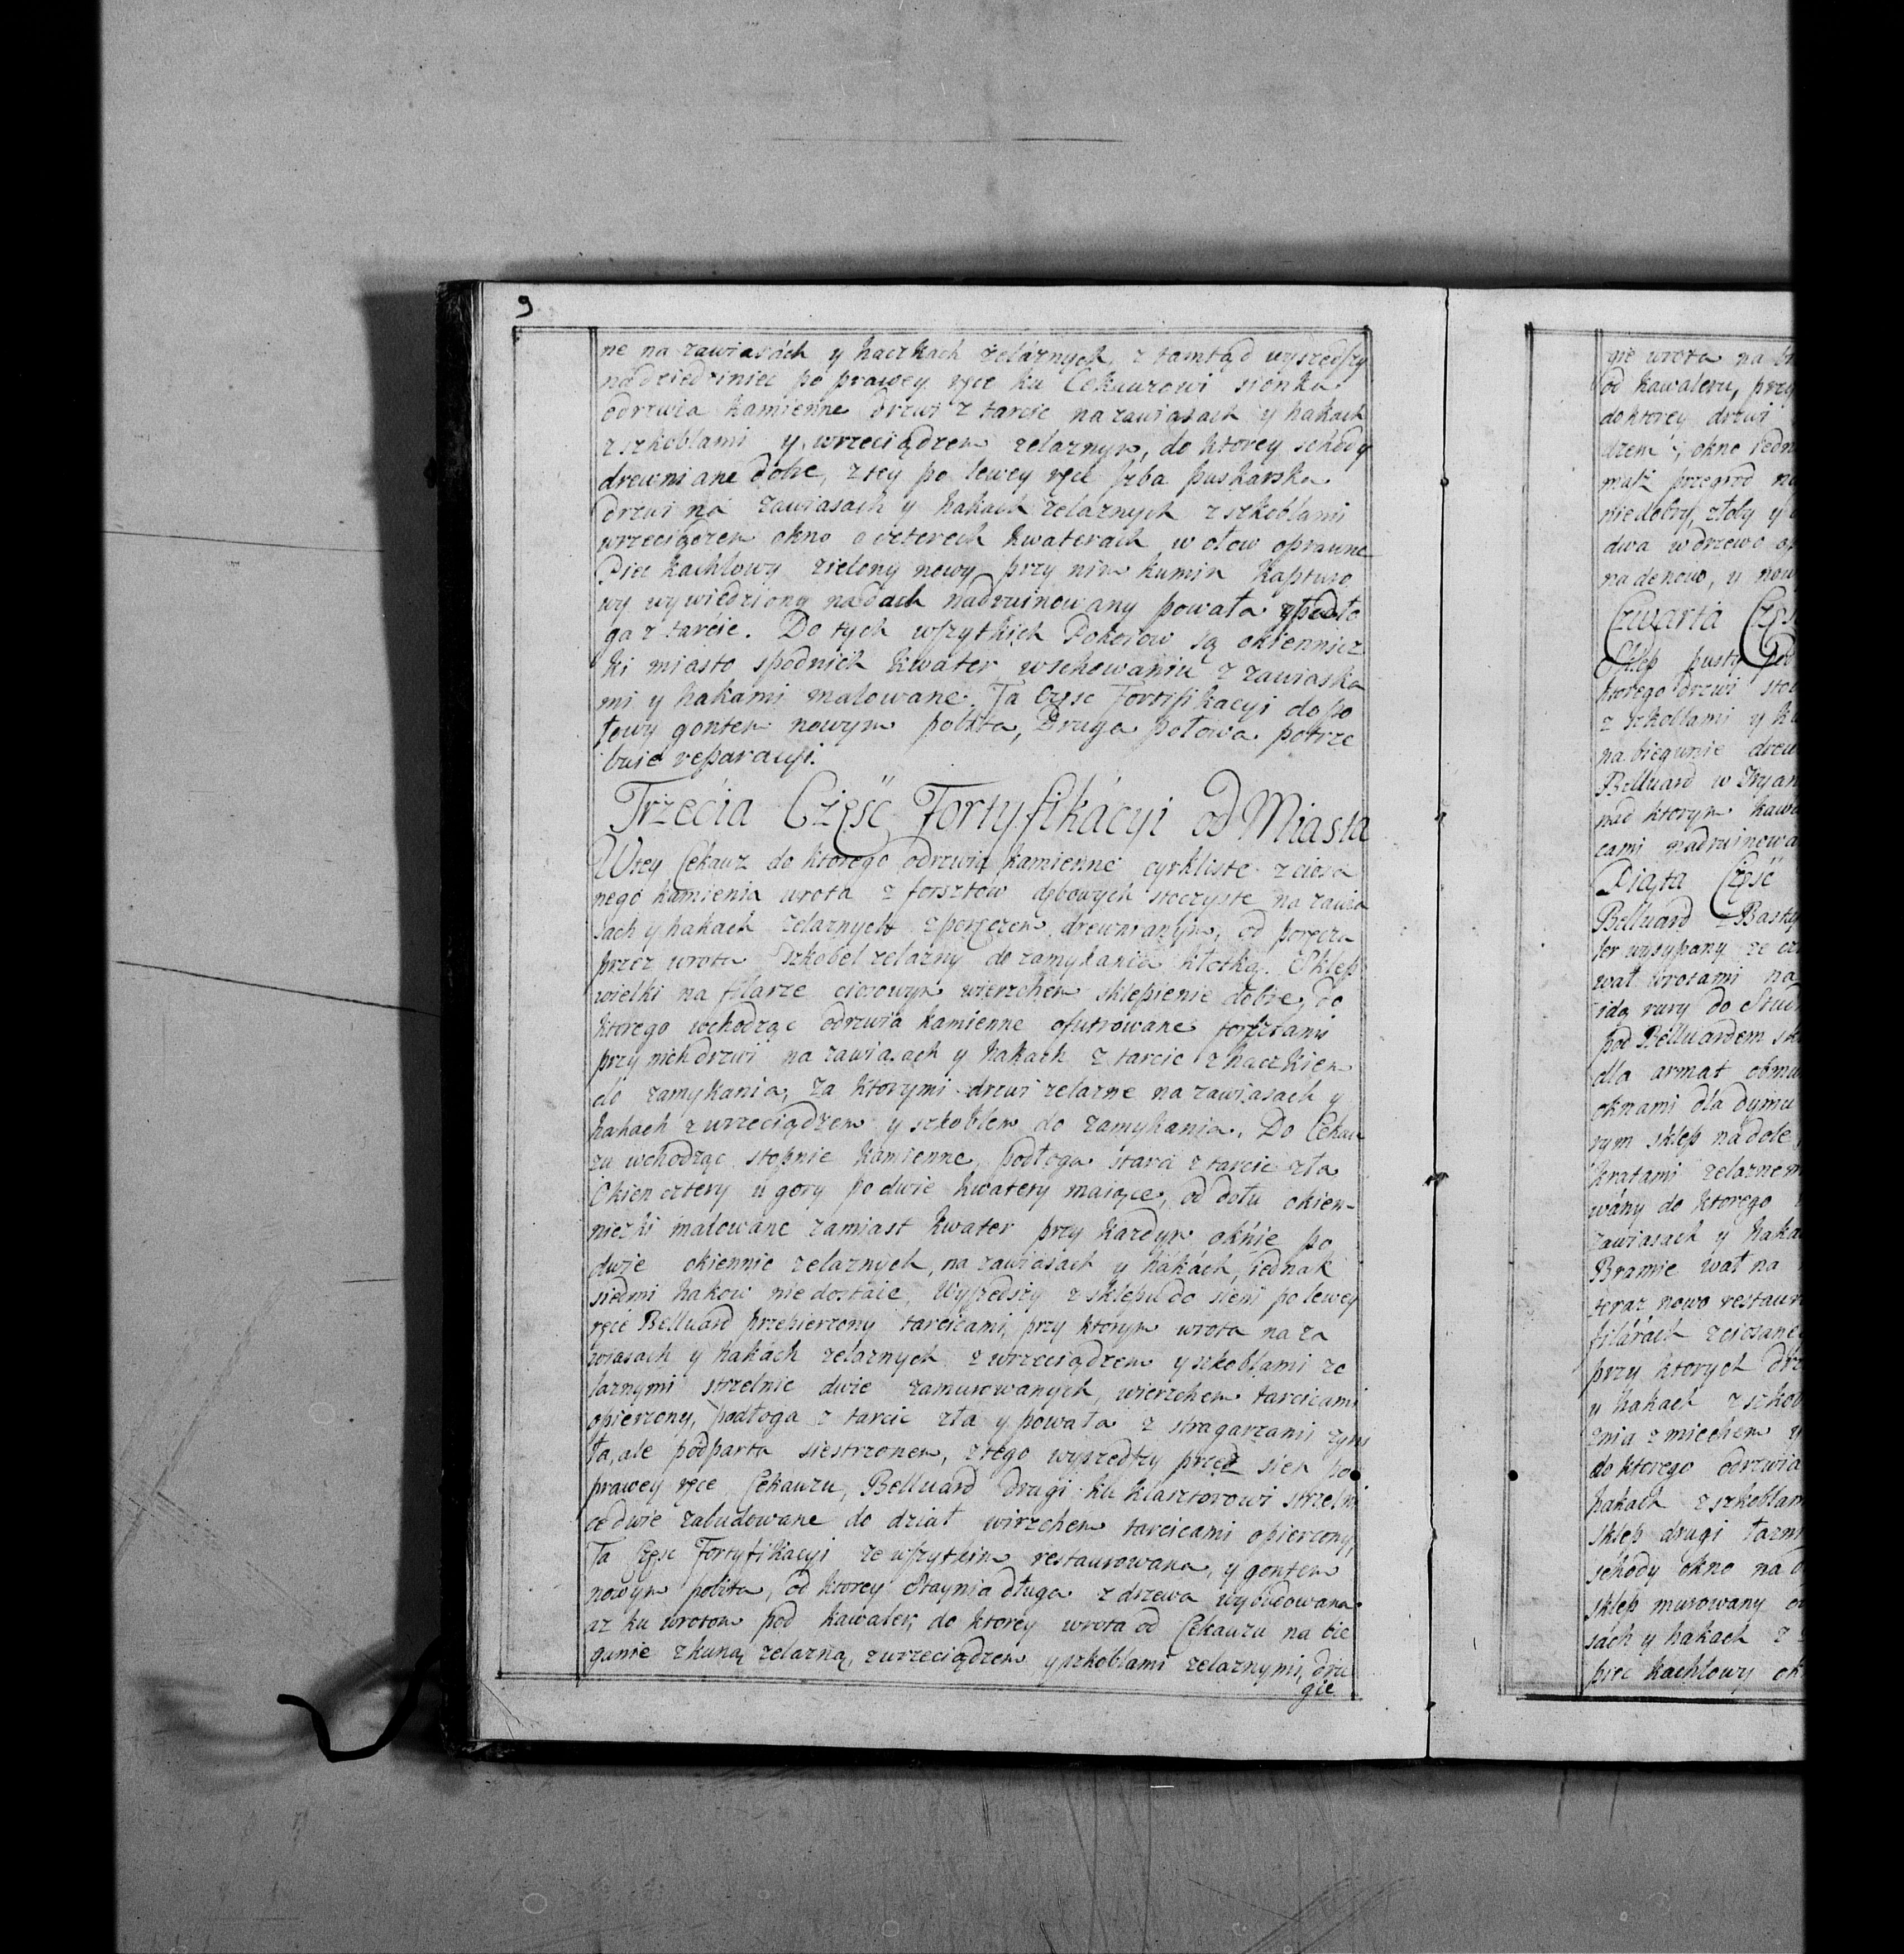 9
ne na zawiasách y haczkach zelaznych, z tamtąd wyszedszy
na dziedziniec po prawey ręce ku Cekauzowi sionka
odrzwia kamienne drzwi z tarcic na zawiasach y hakach
z szkoblami y wrzeciądzem zelaznym, do ktorey schody
drewniane dobre, z tey po lewey ręce Izba puskarska
drzwi ná zawiasach y hakach zelaznych z szkoblami
wrzeciądzem okno o czterech kwaterach w ołow oprawne
Piec kachlowy zielony nowy przy nim kumin kapturo
wy wywiedziony nad dach nadruinowany powała y podło
ga z tarcic. Do tych wszytkich Pokoiow są okienicz
ki miasto spodnich kwater w schowaniu z zawiaska
mi y hakami malowane. Ta Częsc Fortifikacyi do po
łowy gontem nowym pobita, Druga połowa potrze
buie reparacyi.
Trzecia Część Fortyfikácyi od Miasta
W tey Cekauz do ktorego odrzwia kamienne cyrkliste z ciosa
nego kamienia wrota z forsztow dębowych stoczyste na zawia
sach y hakach zelaznych z poręczem drewnianym, od poręcza
przez wrota szkobel zelazny do zamykania kłotką. Sklep
wielki na filarze ciosowym wierzchem sklepienie dobre, do
ktorego wchodząc odrzwia kamienne ofutrowane forsztami
przy nich drzwi na zawiasach y hakach z tarcic z haczkiem
do zamykania, za ktorymi drzwi zelazne na zawiasach y
hakach z wrzeciądzem y szkoblem do zamykania. Do Cekau
zu wchodząc stopnie kamienne, podłoga stara z tarcic zła
Okien cztery u gory po dwie kwatery maiące, od dołu okien-
niczki malowane zamiast kwater przy kazdym oknie po
dwie okiennic zelaznych, na zawiasach y hakách, iednak
siedmi hakow niedostaie, Wyszedszy z sklepu do sieni po lewey
ręce Belluard przepierzony tarcicami, przy ktorym wrota na za
wiasach y hakách zelaznych z wrzeciądzem y szkoblami ze
laznymi strzelnic dwie zamurowanych, wierzchem tarcicami
opierzony, podłoga z tarcic zła y powała z stragarzami zgni
ła, ale podparta siestrzonem, z tego wyszedszy przez sien po
prawey ręce Cekauzu, Belluard drugi ku klasztorowi strzelni
ce dwie zabudowane do dział wirzchem tarcicami opierzony,
Ta Częsc Fortyfikacyi ze wszytkim restaurowana, y gontem
nowym pobita, od ktorey Staynia długa z drzewa wybudowana
az ku wrotom pod kawaler, do ktorey wrota od Cekauzu na bie
gunie z kuną zelazną, z wrzeciądzem y szkoblami zelaznymi, dru
gie
gie wrota na
od kawaleru, przy
do ktorey drzwi
dzem, okno iedn
przegrod
niedobry, złoby y
dwa w drzewo
na denowo, u
Czwarta Częś
Sklep pusty pod
ktorego drzwi
z szkoblami y
na biegunie
Belluard w
nad ktorym kawa
cami nadruinowa
Piąta Część
Belluard
ler wysypany ze
wał wrotami na
idą rury do
pod Belluardem
dla armat
oknami dla dymu
rym sklep na dole
kratami zelaznem
wány do ktorego
zawiasach y haka
Bramie wał na
teraz nowo restaur
filárách z ciosane
przy ktorych
y hakach z szkob
z miechem
do ktorego odrzwia
hakach z szkoblam
sklep drugi
schody okno na
sklep murowany
sách y hakach z
piec kachlowy